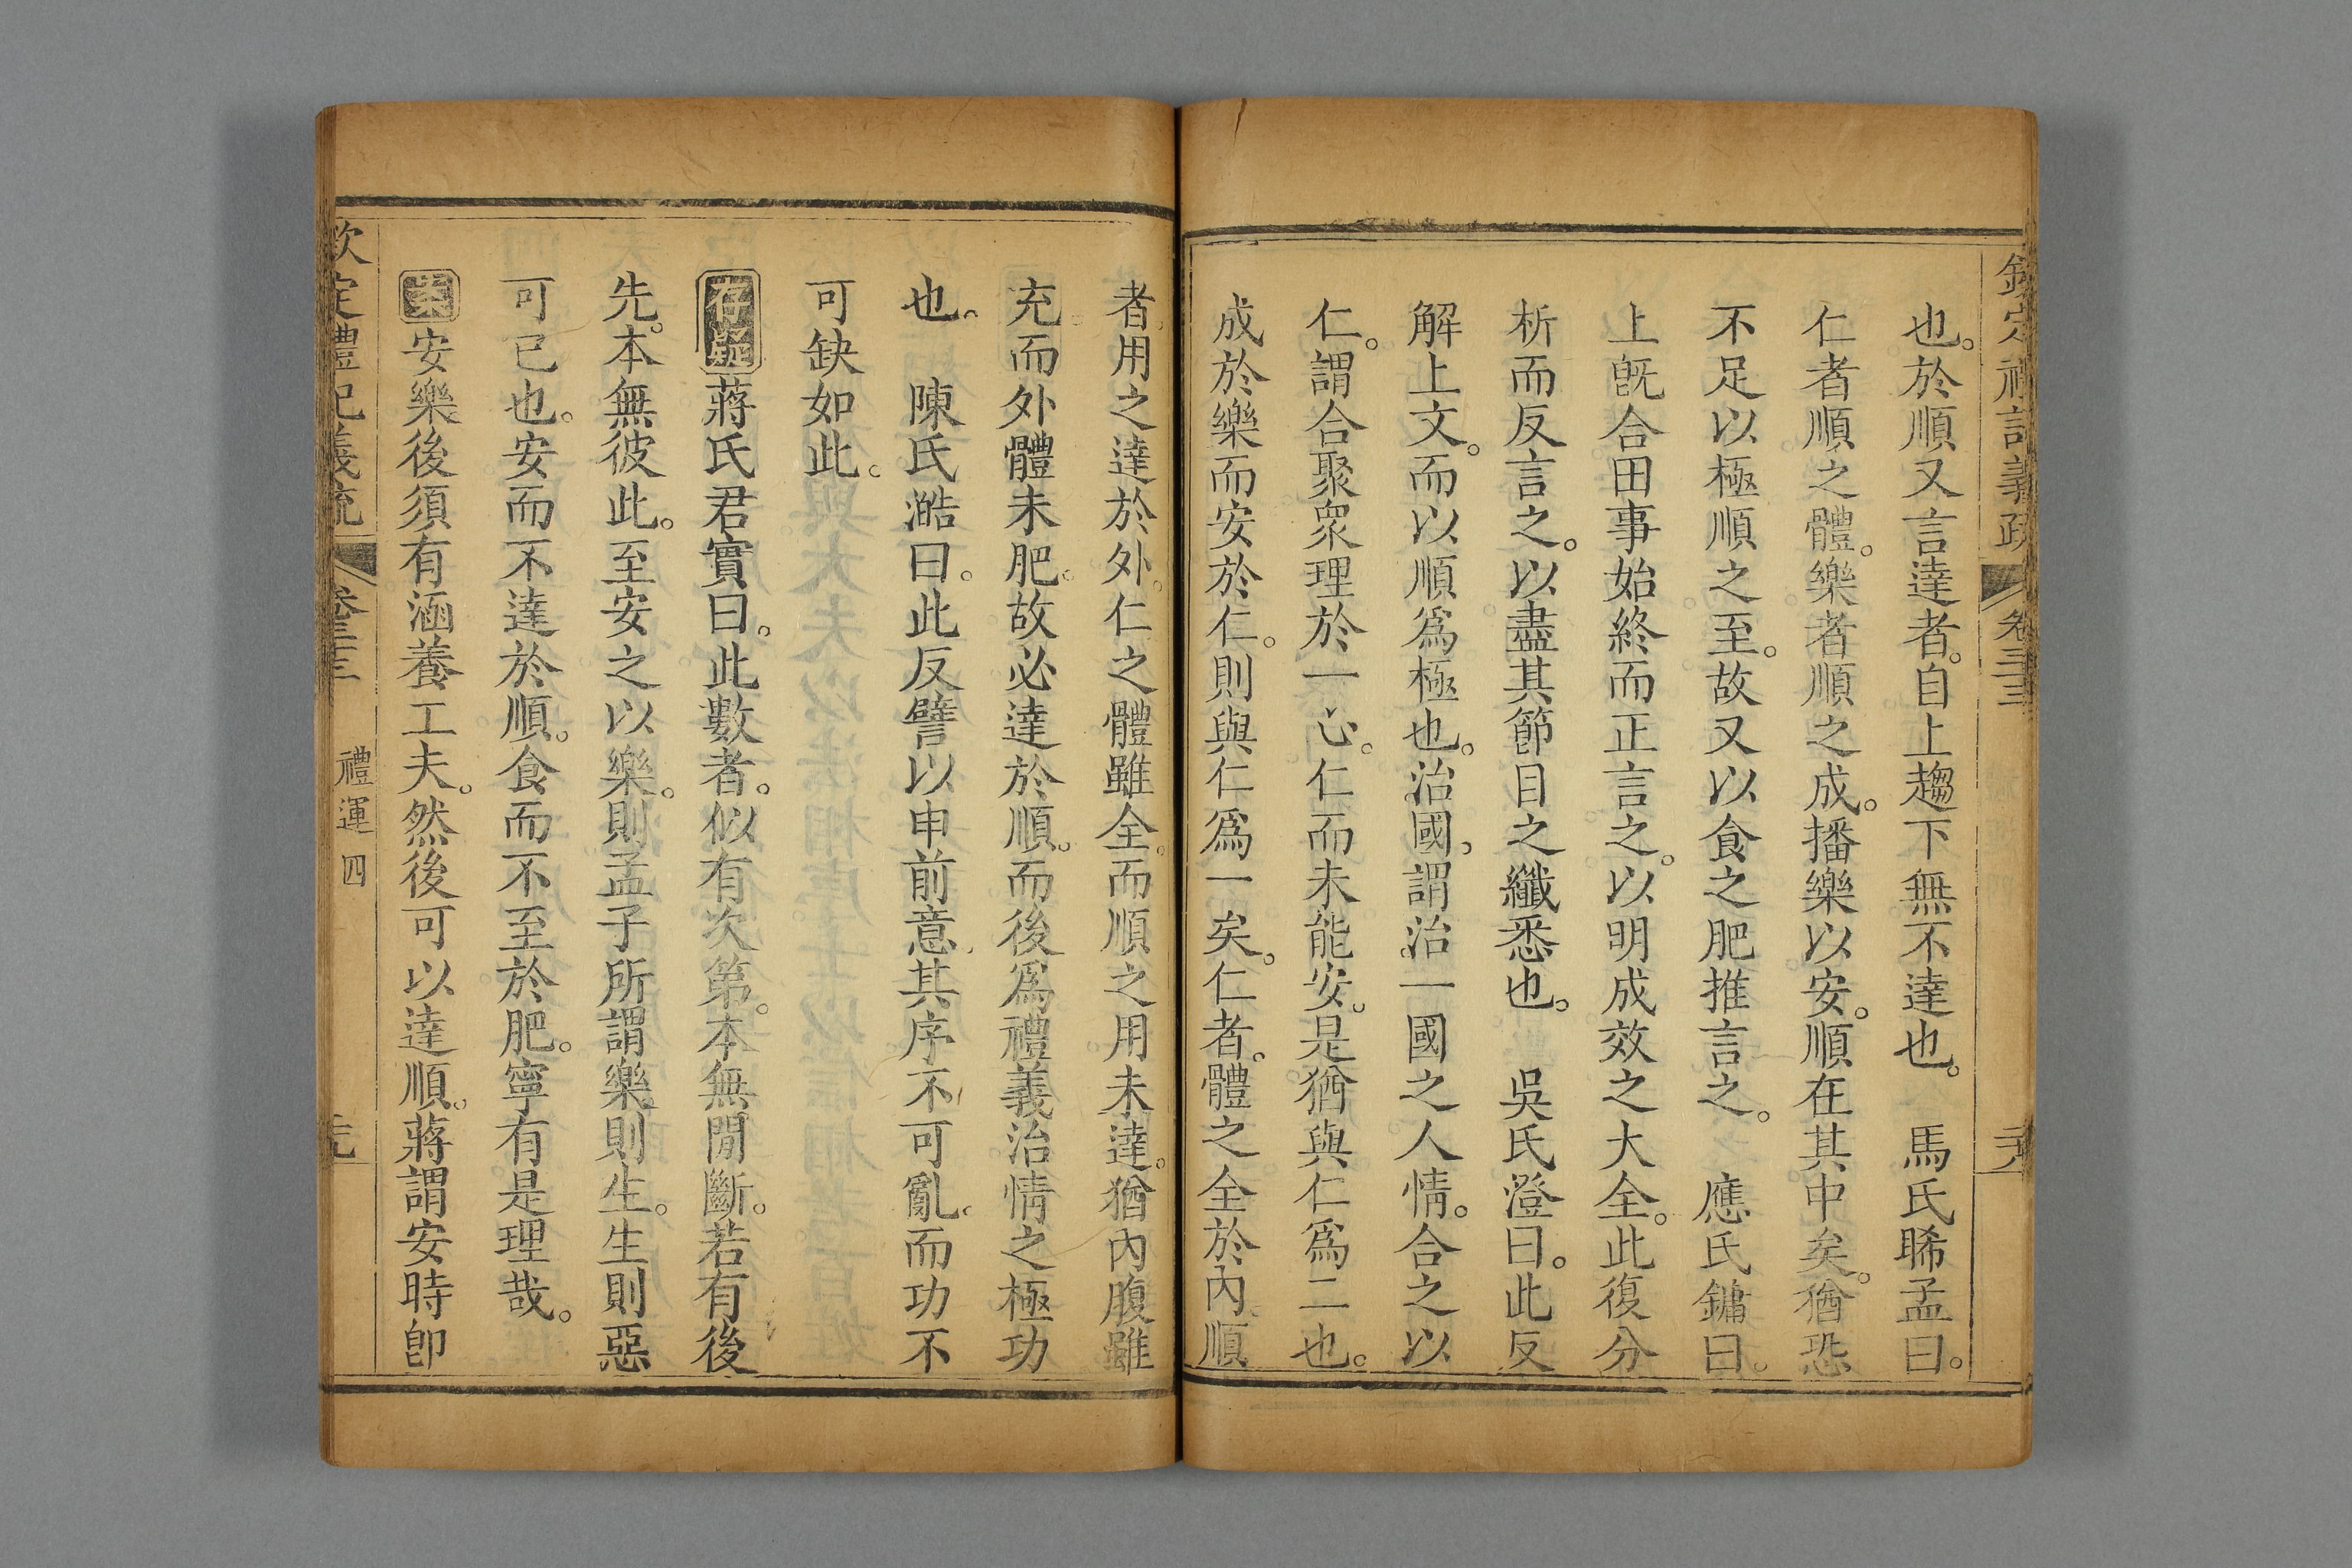 欽定禮記義疏 卷三十三 二十八
也。於順又言達者。自上趨下無不達也。 馬氏睎孟曰。
仁者順之體。樂者順之成。播樂以安。順在其中矣。猶恐
不足以極順之至。故又以食之肥推言之。 應氏鏞曰。
上旣合田事始終而正言之。以明成效之大全。此復分
析而反言之。以盡其節目之纖悉也。 吳氏澄曰。此反
解上文。而以順爲極也。治國。謂治一國之人情。合之以
仁。謂合聚衆理於一心。仁而未能安。是猶與仁爲二也。
成於樂而安於仁。則與仁爲一矣。仁者。體之全於內。順
者用之達於外。仁之體雖全。而順之用未達。猶內腹雖
充而外體未肥。故必達於順。而後爲禮義治情之極功
也。 陳氏澔曰。此反譬以申前意。其序不可亂。而功不
可缺如此。
存疑蔣氏君實曰。此數者。似有次第。本無閒斷。若有後
先。本無彼此。至安之以樂。則孟子所謂樂則生。生則惡
可已也。安而不達於順。食而不至於肥。寧有是理哉。
案安樂後須有涵養工夫。然後可以達順。蔣謂安時卽
欽定禮記義疏 卷三十三 禮運四